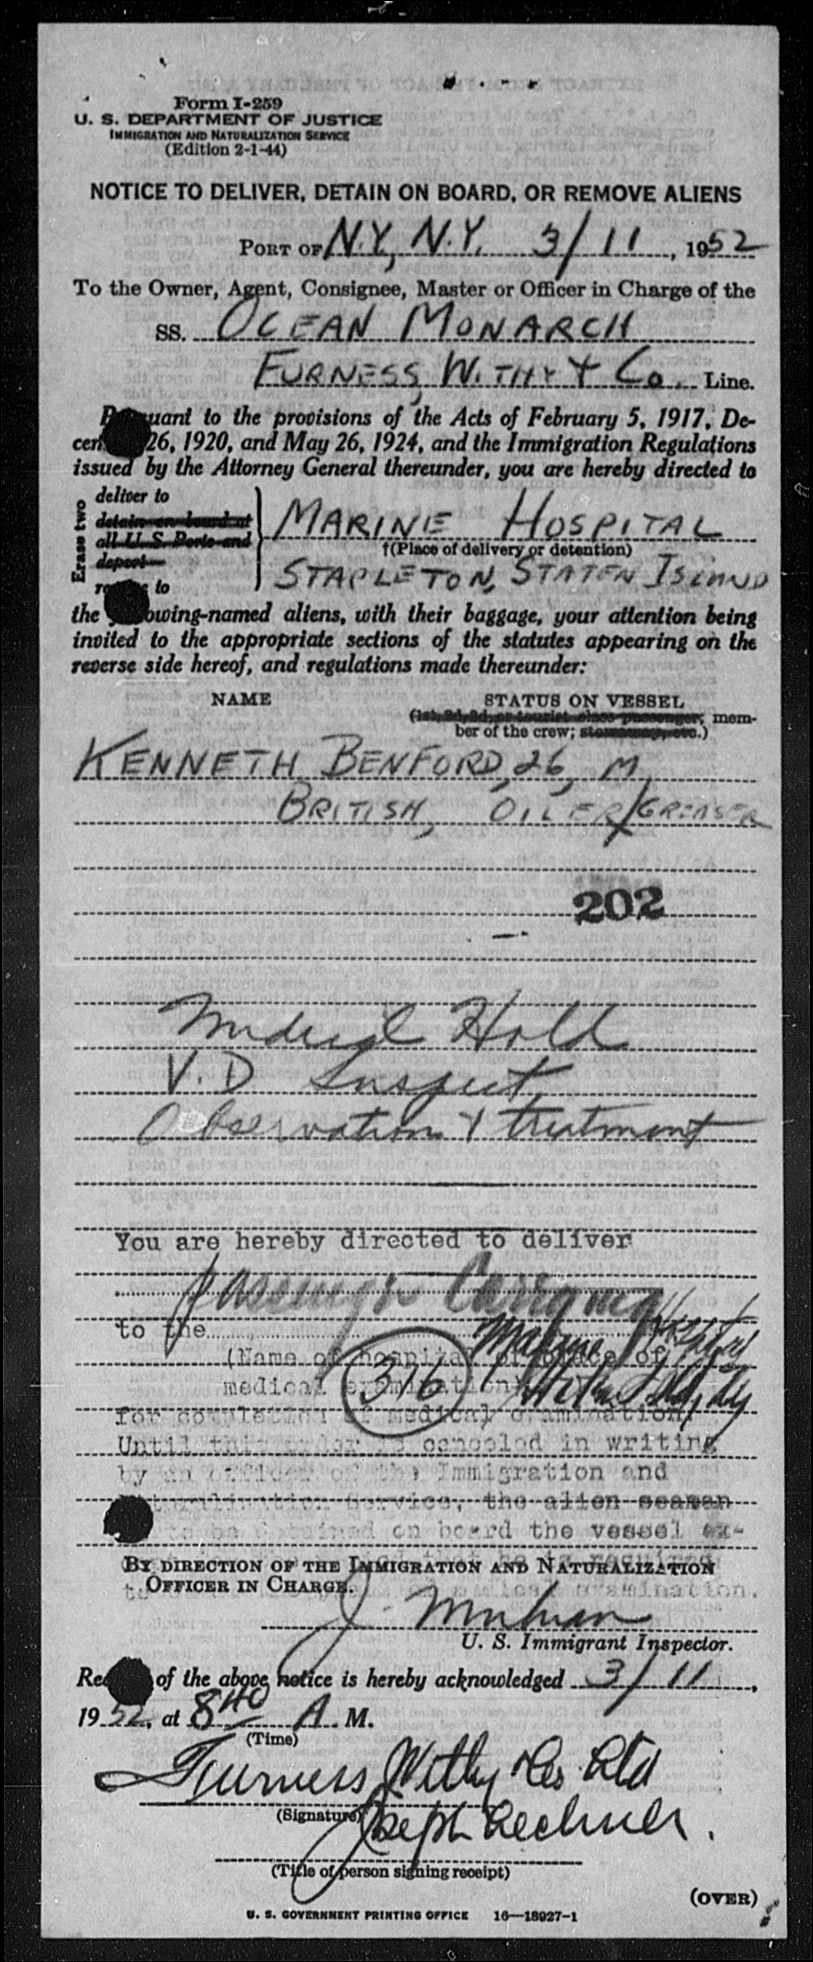 Form I-259
U. S. DEPARTMENT OF JUSTICE
IMMIGRATION AND NATURALIZATION SERVICE
(Edition 2-1-44)
NOTICE TO DELIVER, DETAIN ON BOARD, OR REMOVE ALIENS
PORT OF N.Y., N.Y. 3/11, 1952
To the Owner, Agent, Consignee, Master or Officer in Charge of the
SS. OCEAN MONARCH
FURNESS, WITHY & Co. Line.
Pursuant to the provisions of the Acts of February 5, 1917, De-
cem 26, 1920, and May 26, 1924, and the Immigration Regulations
issued by the Attorney General thereunder, you are hereby directed to
Erase two
deliver to
detain on board at
all U.S. Ports and
deport
to
MARINE HOSPITAL
†(Place of delivery or detention)
STAPLETON, STATEN ISLAND
the following-named aliens, with their baggage, your attention being
invited to the appropriate sections of the statutes appearing on the
reverse side hereof, and regulations made thereunder:
NAME STATUS ON VESSEL
(1st, 2d, 3d, or tourist class passenger; mem-
ber of the crew; stowaway, etc.)
KENNETH BENFORD, 26, M
BRITISH, OILER/GREASER
202
Medical Hold
V.D Suspect
Observation & treatment
You are hereby directed to deliver
Passenger Carrying
to the Marine Hospital
(Name of hospital or place of
medical examination)
316
for completion of medical examination.
Until this order is canceled in writing
by an officer of the Immigration and
Naturalization Service, the alien seaman
to be detained on board the vessel ex-
required
to medical examination.
BY DIRECTION OF THE IMMIGRATION AND NATURALIZATION
OFFICER IN CHARGE.
J.
U. S. Immigrant Inspector.
Re of the above notice is hereby acknowledged 3/11,
1952, at 8 40 A. M.
(Time)
Furness Withy & Co. Ltd
(Signature)
Joseph Lechner.
(Title of person signing receipt)
(OVER)
U. S. GOVERNMENT PRINTING OFFICE 16—18927-1